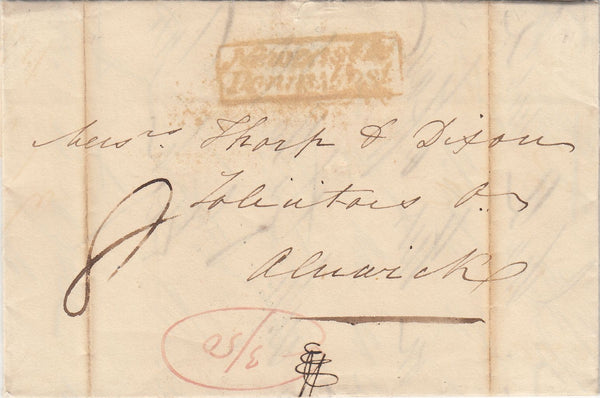 Newcastle
Penny Post
Messrs Thorp & Dixon
Solicitors &c
8
Alnwick